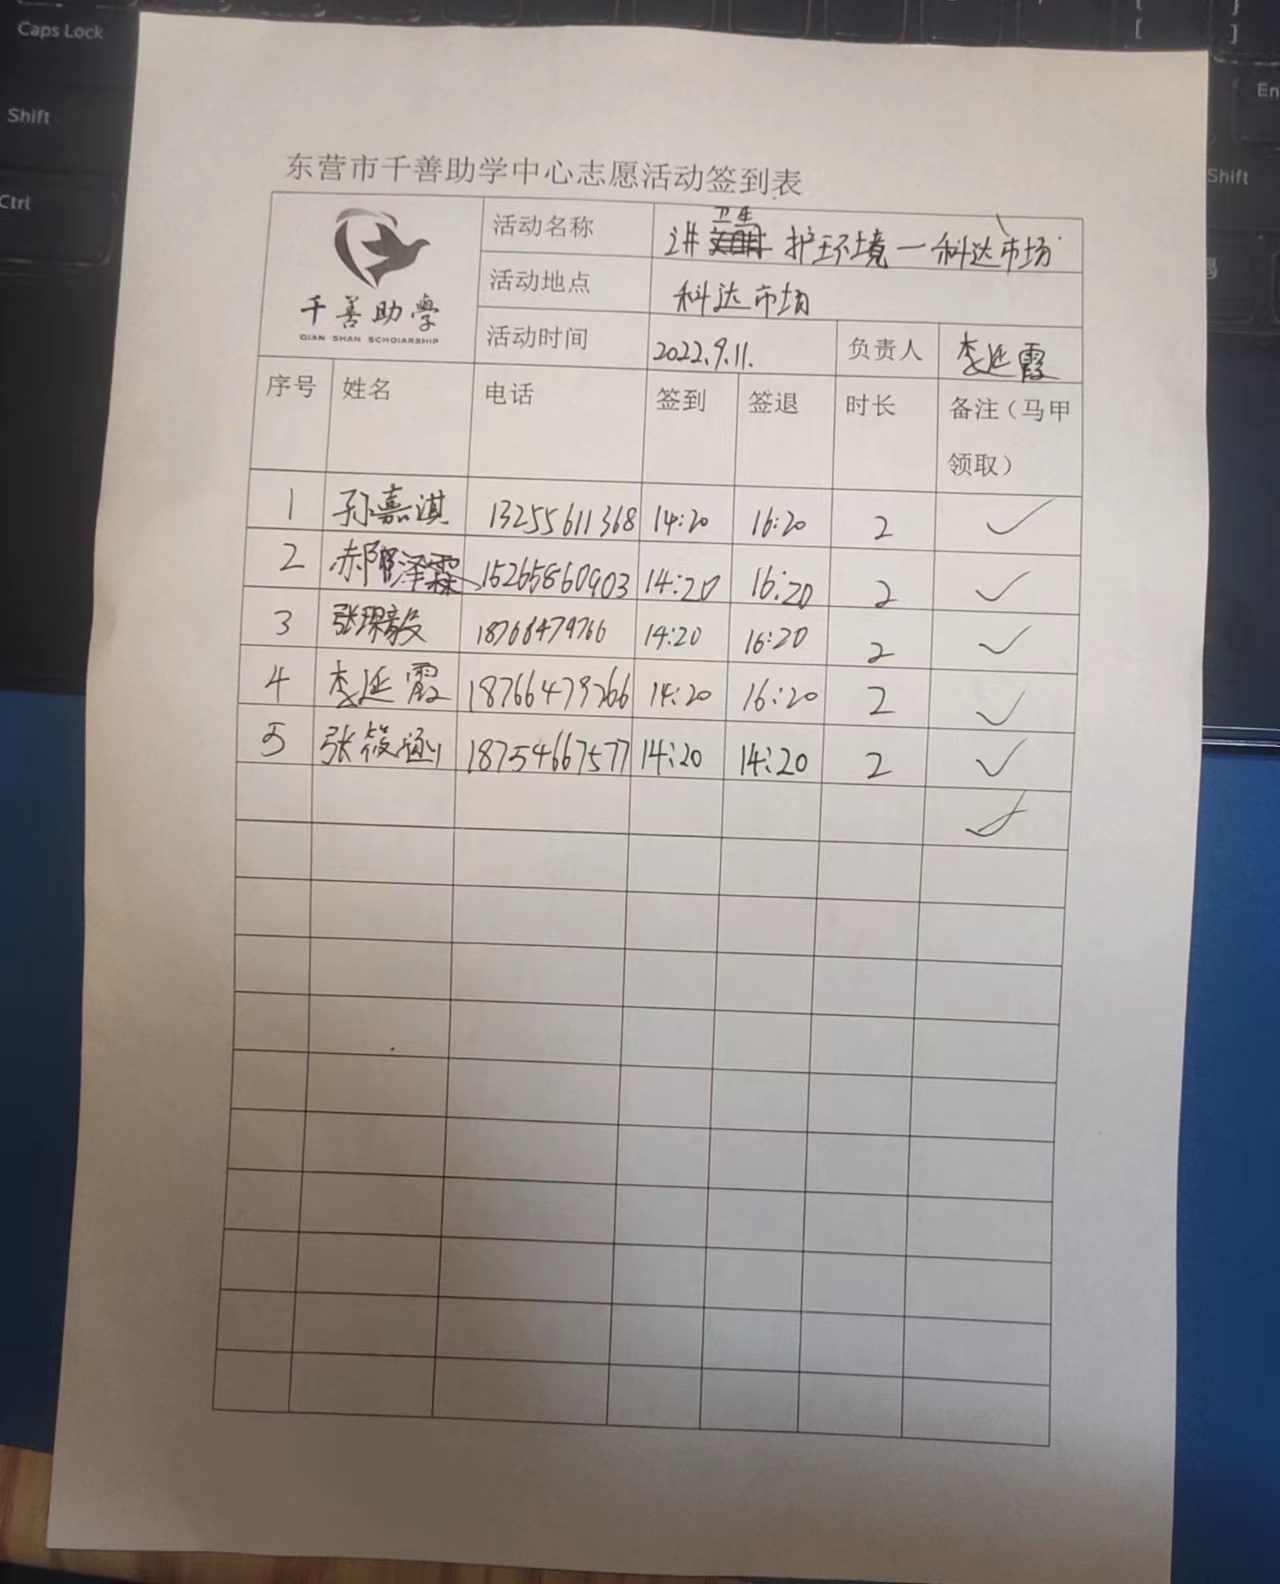 Caps Lock
Shift
Ctrl
En
Shift
东营市千善助学中心志愿活动签到表
千善助學
QIAN SHAN SCHOIARSHIP
活动名称 讲卫生 护环境一科达市场
活动地点 科达市场
活动时间 2022.9.11. 负责人 李延霞
序号 姓名 电话 签到 签退 时长 备注（马甲
领取）
1 孙嘉淇 13255611368 14:20 16:20 2 ✓
2 郝泽霖 15265860903 14:20 16:20 2 ✓
3 张琛毅 18766479766 14:20 16:20 2 ✓
4 李延霞 18766479766 14:20 16:20 2 ✓
5 张筱涵 18754667577 14:20 14:20 2 ✓
✓